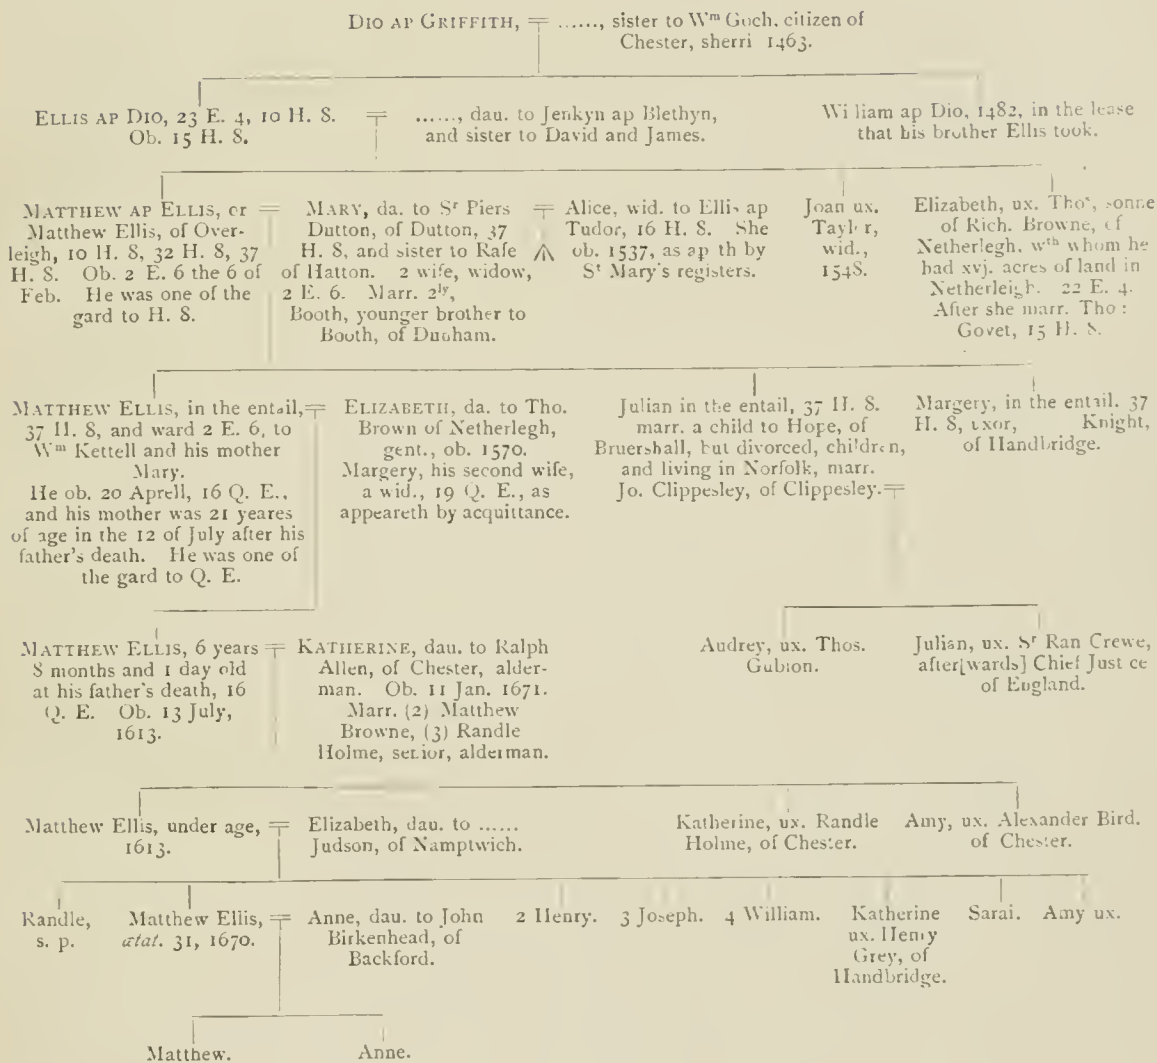 DIO AP GRIFFITH, = ......, sister to Wm Goch, citizen of
Chester, sherri 1463.
ELLIS AP DIO, 23 E. 4, 10 H. 8.
Ob. 15 H. 8.
= ......, dau. to Jenkyn ap Blethyn,
and sister to David and James.
Wi liam ap Dio, 1482, in the lease
that his brother Ellis took.
MATTHEW AP ELLIS, or
Matthew Ellis, of Over-
leigh, 10 H. 8, 32 H. 8, 37
H. 8. Ob. 2 E. 6 the 6 of
Feb. He was one of the
gard to H. 8.
= MARY, da. to Sr Piers
Dutton, of Dutton, 37
H. 8, and sister to Rafe
of Hatton. 2 wife, widow,
2 E. 6. Marr. 2ly,
Booth, younger brother to
Booth, of Dunham.
= Alice, wid. to Ellis ap
Tudor, 16 H. 8. She
ob. 1537, as ap th by
St Mary's registers.
Joan ux.
Tayl r,
wid.,
1548.
Elizabeth, ux. Thos, sonne
of Rich. Browne, of
Netherlegh, wth whom he
had xvj. acres of land in
Netherleigh. 22 E. 4.
After she marr. Tho:
Govet, 15 H. 8.
MATTHEW ELLIS, in the entail, =
37 H. 8, and ward 2 E. 6, to
Wm Kettell and his mother
Mary.
He ob. 20 Aprell, 16 Q. E.,
and his mother was 21 yeares
of age in the 12 of July after his
father's death. He was one of
the gard to Q. E.
ELIZABETH, da. to Tho.
Brown of Netherlegh,
gent., ob. 1570.
Margery, his second wife,
a wid., 19 Q. E., as
appeareth by acquittance.
Julian in the entail, 37 H. 8.
marr. a child to Hope, of
Bruershall, but divorced, children,
and living in Norfolk, marr.
Jo. Clippesley, of Clippesley. =
Margery, in the entail. 37
H. 8, uxor, Knight,
of Handbridge.
MATTHEW ELLIS, 6 years =
8 months and 1 day old
at his father's death, 16
Q. E. Ob. 13 July,
1613.
KATHERINE, dau. to Ralph
Allen, of Chester, alder-
man. Ob. 11 Jan. 1671.
Marr. (2) Matthew
Browne, (3) Randle
Holme, senior, alderman.
Audrey, ux. Thos.
Gubion.
Julian, ux. Sr Ran Crewe,
after[wards] Chief Just ce
of England.
Matthew Ellis, under age, =
1613.
Elizabeth, dau. to ......
Judson, of Namptwich.
Katherine, ux. Randle
Holme, of Chester.
Amy, ux. Alexander Bird.
of Chester.
Randle,
s. p.
Matthew Ellis, =
ætat. 31, 1670.
Anne, dau. to John
Birkenhead, of
Backford.
2 Henry.
3 Joseph.
4 William.
Katherine
ux. Henry
Grey, of
Handbridge.
Sarai.
Amy ux.
Matthew.
Anne.